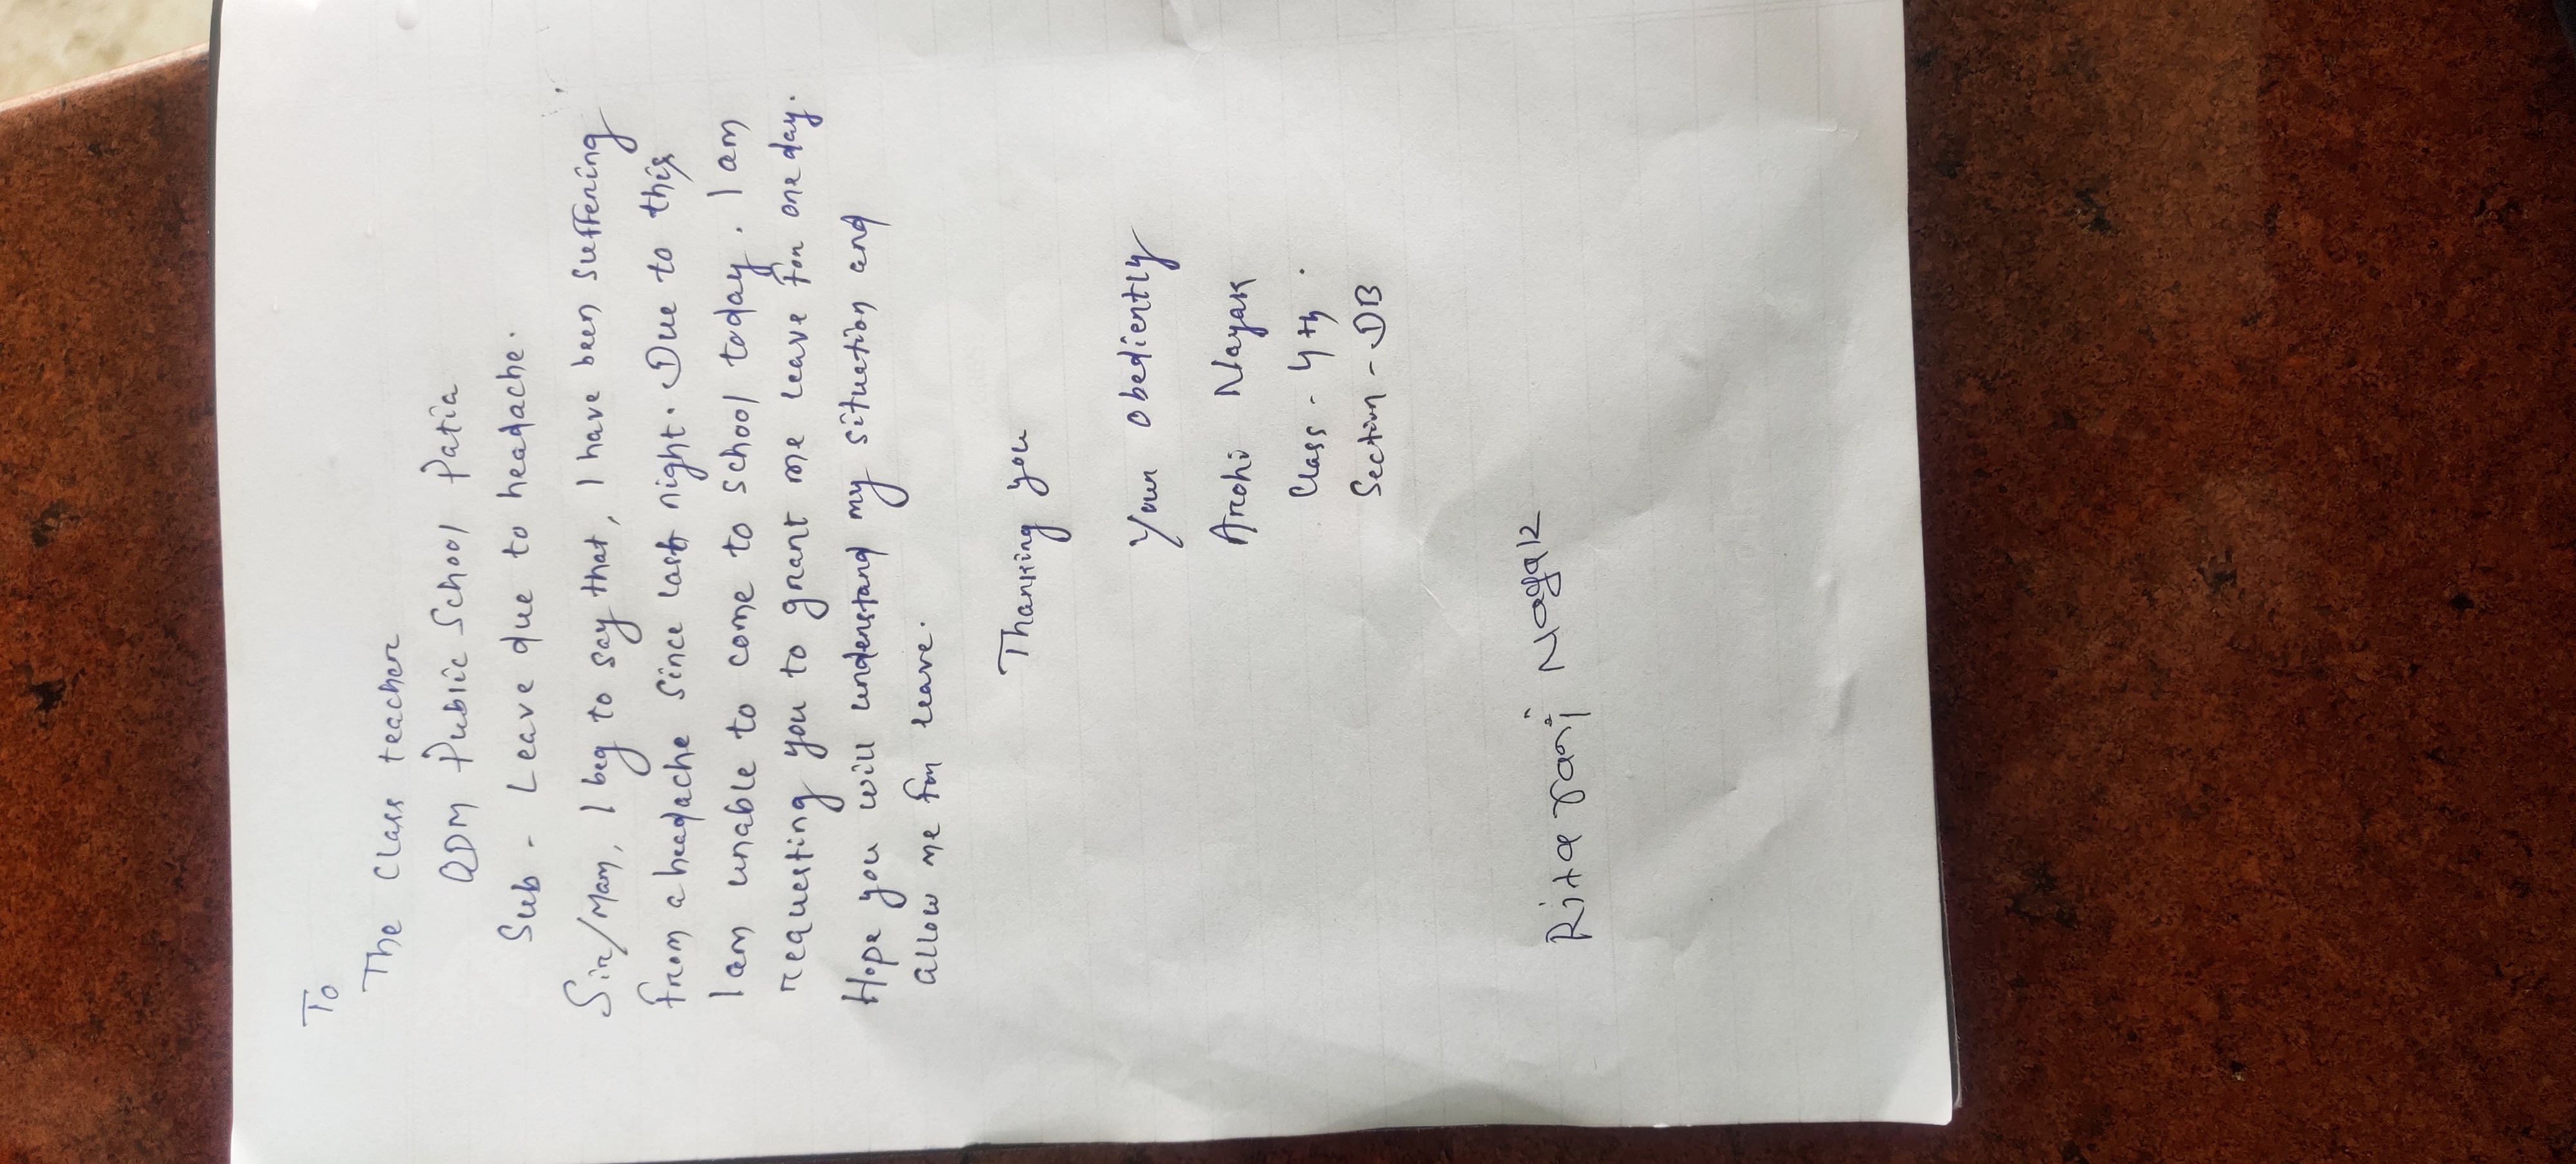 To
The Class teacher
ODM Public School Patia
Sub - Leave due to headache.
Sir/Mam, I beg to say that, I have been suffering
from a headache since last night. Due to this
I am unable to come to school today. I am
requesting you to grant me leave for one day.
Hope you will understand my situation and
allow me for leave.
Thanking you
Your obediently
Arohi Nayak
Class - 4th.
Section - DB
Rita rani Nayak